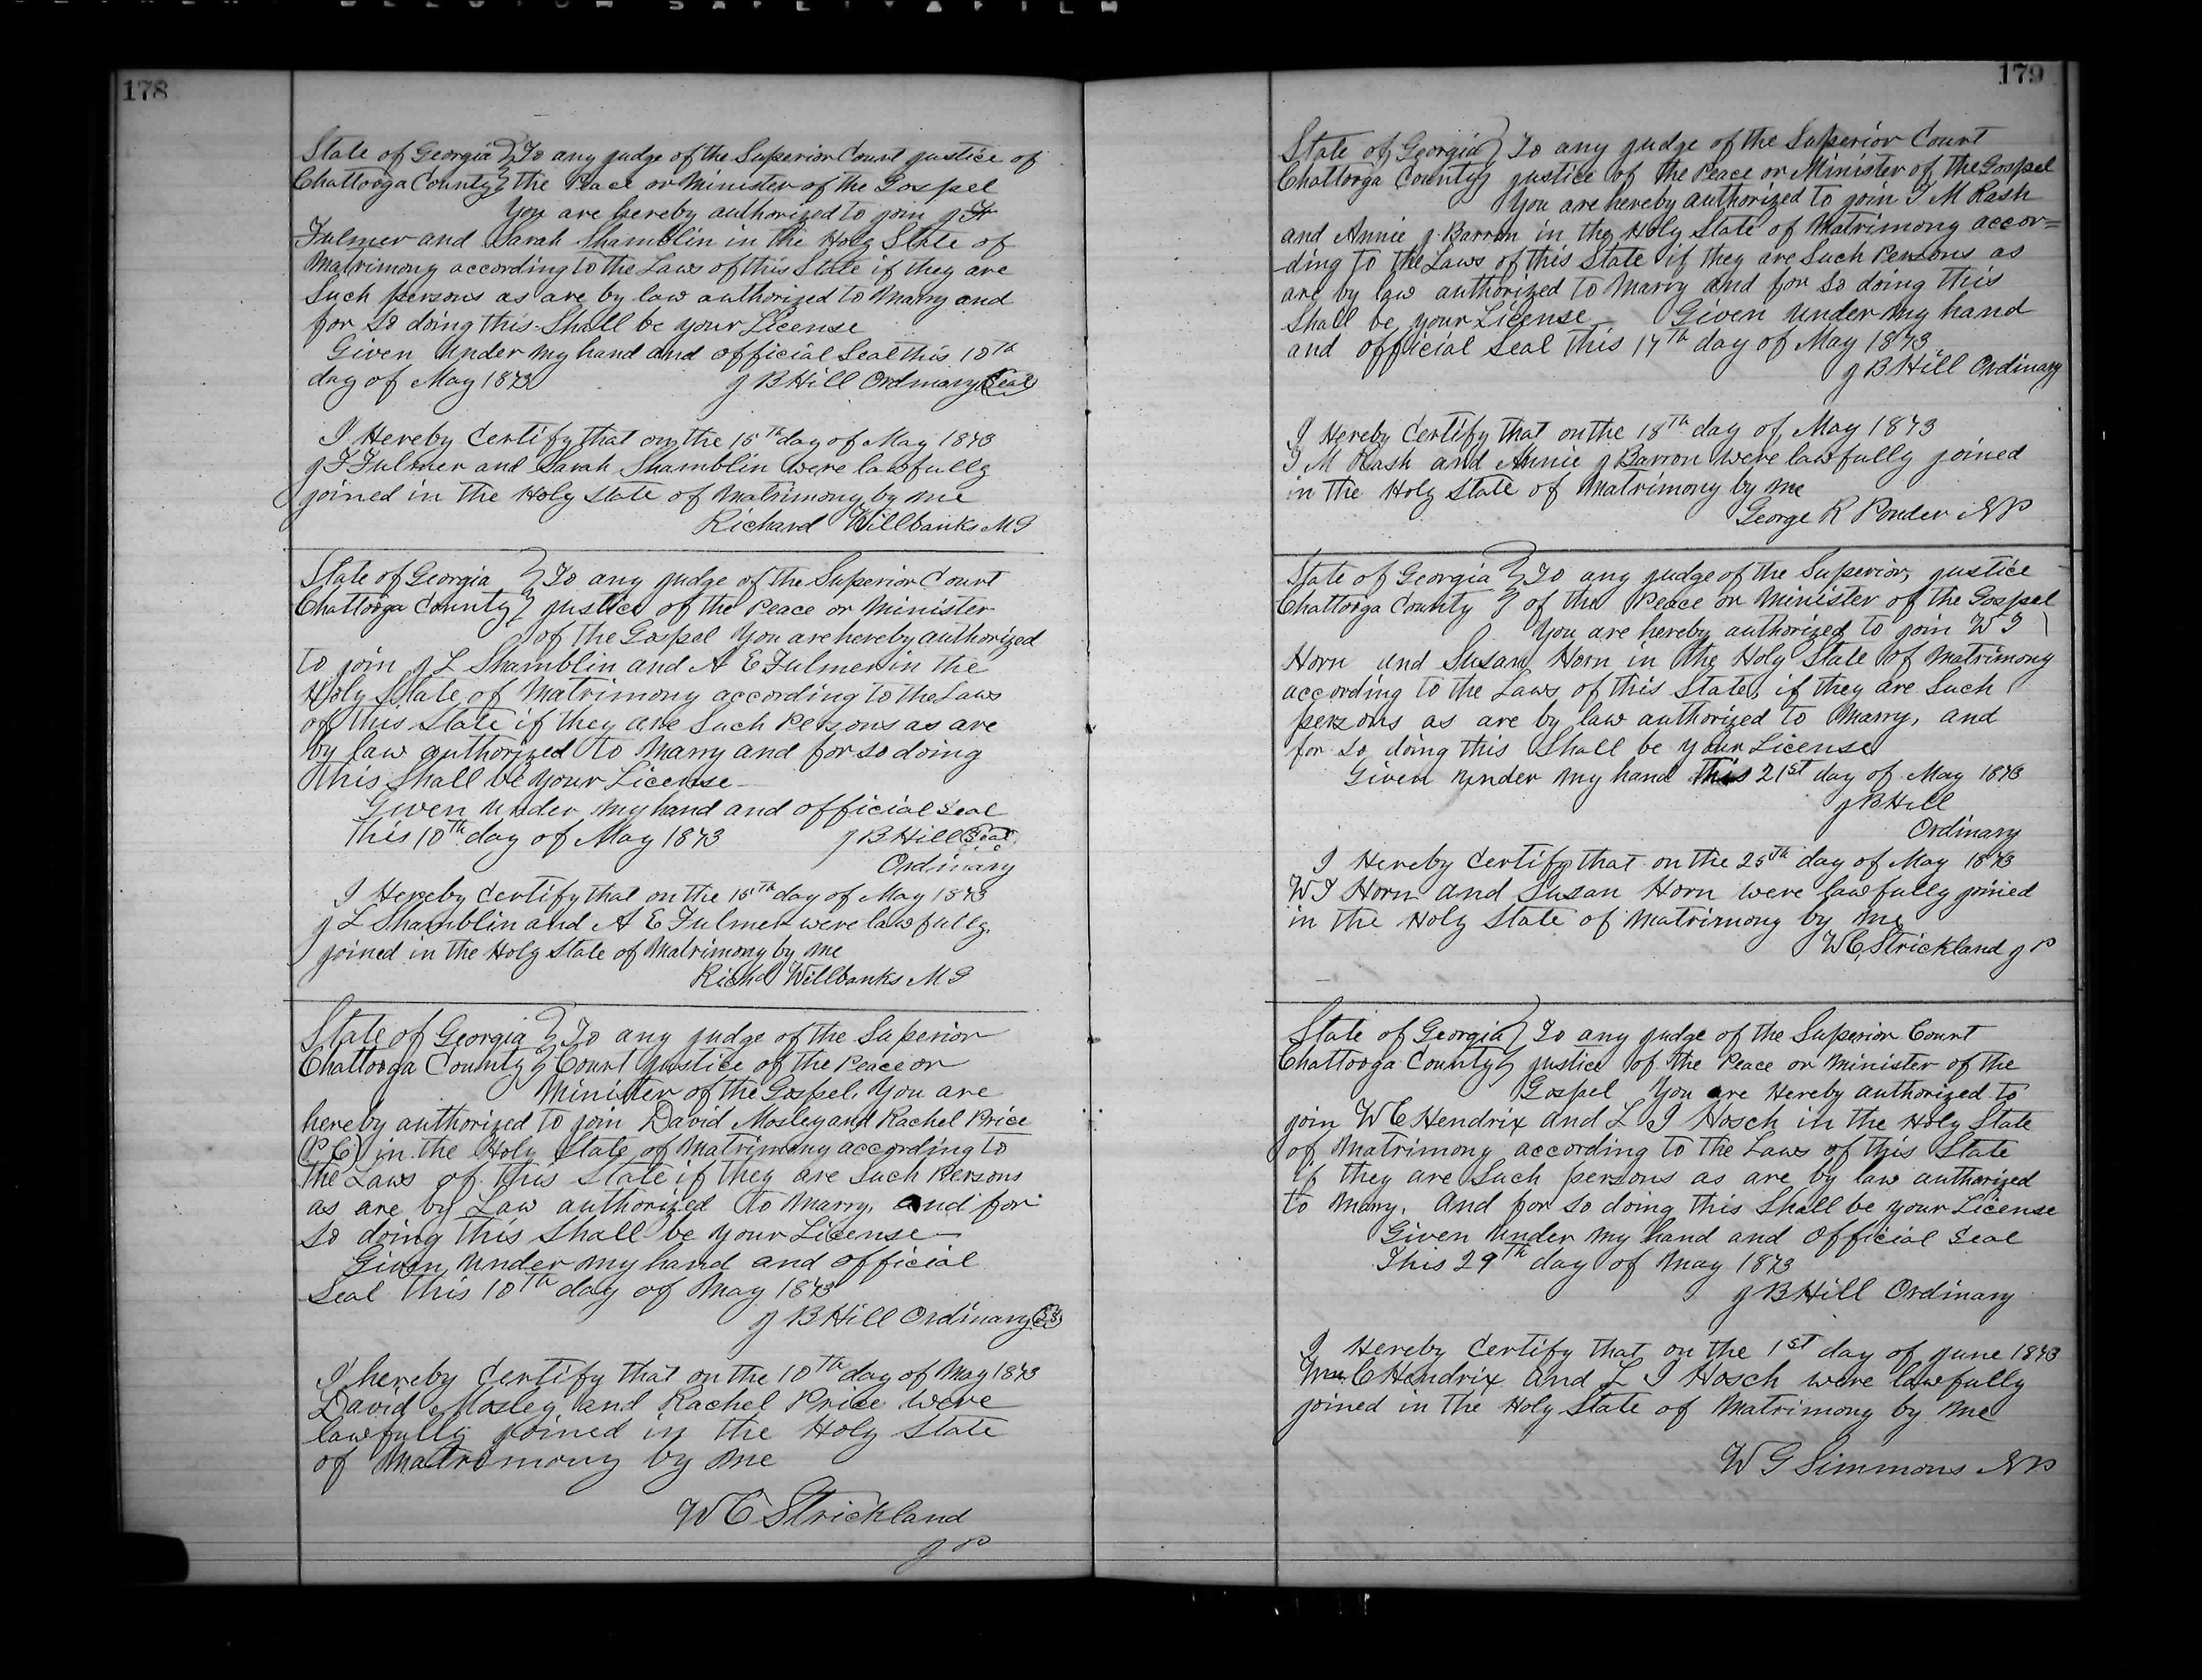 178
State of Georgia } To any judge of the Superior Court justice of
Chattooga County } the Peace or Minister of the Gospel
You are hereby authorized to join J F
Fulmer and Sarah Shamblin in the Holy State of
Matrimony according to the Laws of this State if they are
Such persons as are by law authorized to marry and
for so doing this Shall be your License
Given under my hand and official Seal this 10th
day of May 1873 J B Hill Ordinary Seal
I Hereby Certify that on the 15th day of May 1873
J F Fulmer and Sarah Shamblin were lawfully
joined in the Holy State of Matrimony by me
Richard Willbanks M G
State of Georgia } To any judge of the Superior Court
Chattooga County } justice of the Peace or Minister
of the Gospel You are hereby authorized
to join J L Shamblin and A E Fulmer in the
Holy State of Matrimony according to the Laws
of this State if they are Such Persons as are
by law authorized to marry and for so doing
this Shall be your License
Given under my hand and official Seal
this 10th day of May 1873 J B Hill Seal
Ordinary
I Hereby Certify that on the 15th day of May 1873
J L Shamblin and A E Fulmer were lawfully
joined in the Holy State of Matrimony by me
Richd Willbanks M G
State of Georgia } To any judge of the Superior
Chattooga County } Court justice of the Peace or
Minister of the Gospel. You are
hereby authorized to join David Mosley and Rachel Price
(P C) in the Holy State of Matrimony according to
the Laws of this State if they are Such Persons
as are by Law authorized to marry, and for
so doing this Shall be your License
Given under my hand and official
Seal this 10th day of May 1873
J B Hill Ordinary
I hereby Certify that on the 10th day of May 1873
David Mosley and Rachel Price were
lawfully joined in the Holy State
of Matrimony by me
W C Strickland
J P
179
State of Georgia } To any judge of the Superior Court
Chattooga County } justice of the Peace or Minister of the Gospel
You are hereby authorized to join T M Rash
and Annie J Barron in the Holy State of Matrimony accor=
ding to the Laws of this State if they are Such Persons as
are by law authorized to marry and for so doing this
Shall be your License Given under my hand
and official Seal this 17th day of May 1873
J B Hill Ordinary
I Hereby Certify that on the 18th day of May 1873
T M Rash and Annie J Barron were lawfully joined
in the Holy State of Matrimony by me
George R Ponder N P
State of Georgia } To any judge of the Superior, justice
Chattooga County } of the Peace or Minister of the Gospel
You are hereby authorized to join W T
Horn and Susan Horn in the Holy State of Matrimony
according to the Laws of this State, if they are Such
persons as are by law authorized to marry, and
for so doing this Shall be your License
Given under my hand this 21st day of May 1873
J B Hill
Ordinary
I Hereby Certify that on the 25th day of May 1873
W T Horn and Susan Horn were lawfully joined
in the Holy State of Matrimony by me
W C Strickland J P
State of Georgia } To any judge of the Superior Court
Chattooga County } justice of the Peace or Minister of the
Gospel You are Hereby authorized to
join W C Hendrix and L J Hosch in the Holy State
of Matrimony according to the Laws of this State
if they are Such persons as are by law authorized
to marry. And for so doing this Shall be your License
Given under my hand and Official Seal
This 29th day of May 1873
J B Hill Ordinary
I Hereby Certify that on the 1st day of June 1873
Wm C Hendrix and L J Hosch were lawfully
joined in the Holy State of Matrimony by me
W G Simmons N P